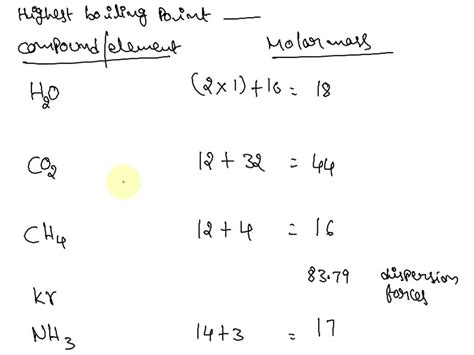 Highest boiling Point ___
compound/element Molar mass
H2O (2x1)+16 = 18
CO2 12 + 32 = 44
CH4 12 + 4 = 16
83.79 dispersion
Kr forces
NH3 14+3 = 17